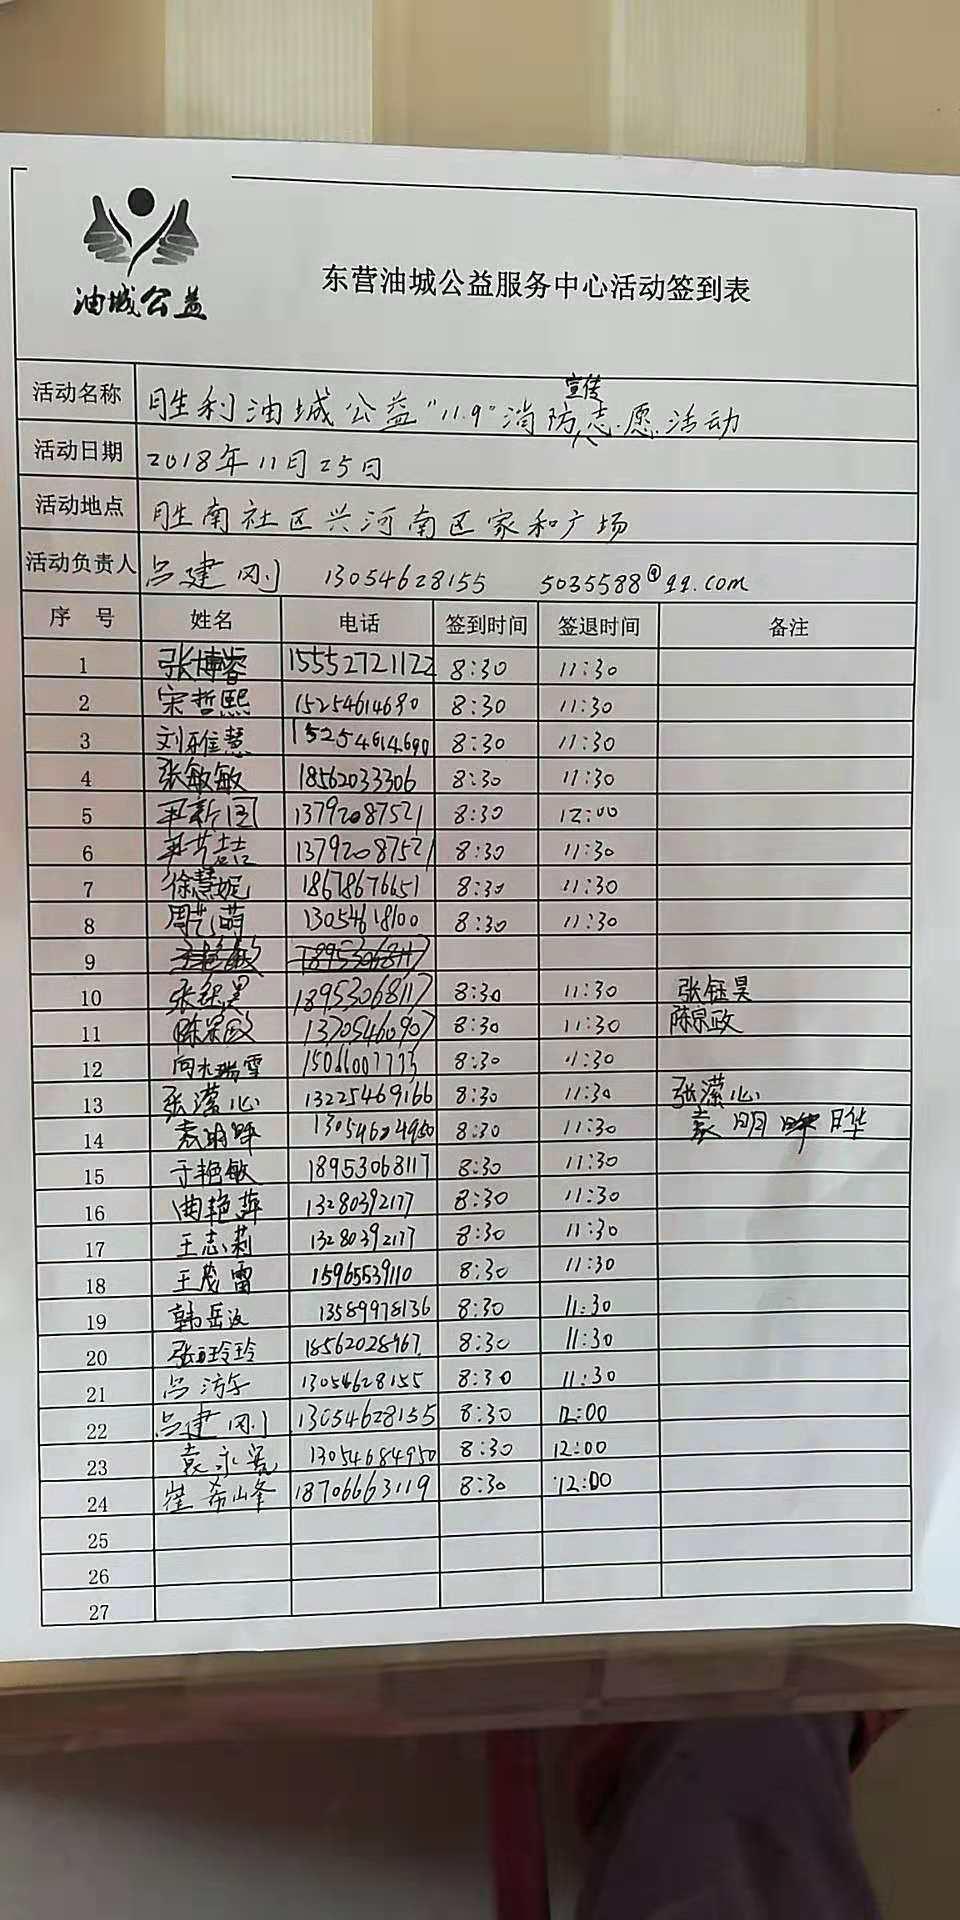 油城公益
东营油城公益服务中心活动签到表
活动名称 胜利油城公益"11.9"消防宣传志愿活动
活动日期 2018年11月25日
活动地点 胜南社区兴河南区家和广场
活动负责人 吕建刚 13054628155 5035588@qq.com
序号 姓名 电话 签到时间 签退时间 备注
1 张博睿 15552721122 8:30 11:30
2 宋哲熙 15254614690 8:30 11:30
3 刘雅慧 15254614690 8:30 11:30
4 张敏敏 18562033306 8:30 11:30
5 尹新国 13792087521 8:30 12:00
6 尹艺喆 13792087521 8:30 11:30
7 徐慧妮 18678676651 8:30 11:30
8 周艺萌 13054618100 8:30 11:30
9 18953068117
10 张钰昊 18953068117 8:30 11:30 张钰昊
11 陈泉政 13705460907 8:30 11:30 陈泉政
12 瑞雪 8:30 11:30
13 张潆心 13225469166 8:30 11:30 张潆心
14 袁明晔 8:30 11:30 袁明晔
15 于艳敏 18953068117 8:30 11:30
16 曲艳萍 13280392177 8:30 11:30
17 王志莉 13280392177 8:30 11:30
18 王茂雷 15965539110 8:30 11:30
19 韩岳 13589978136 8:30 11:30
20 张玉玲 18562028967 8:30 11:30
21 吕 13054628155 8:30 11:30
22 吕建刚 13054628155 8:30 12:00
23 袁永 13054684950 8:30 12:00
24 崔希峰 18706663119 8:30 12:00
25
26
27